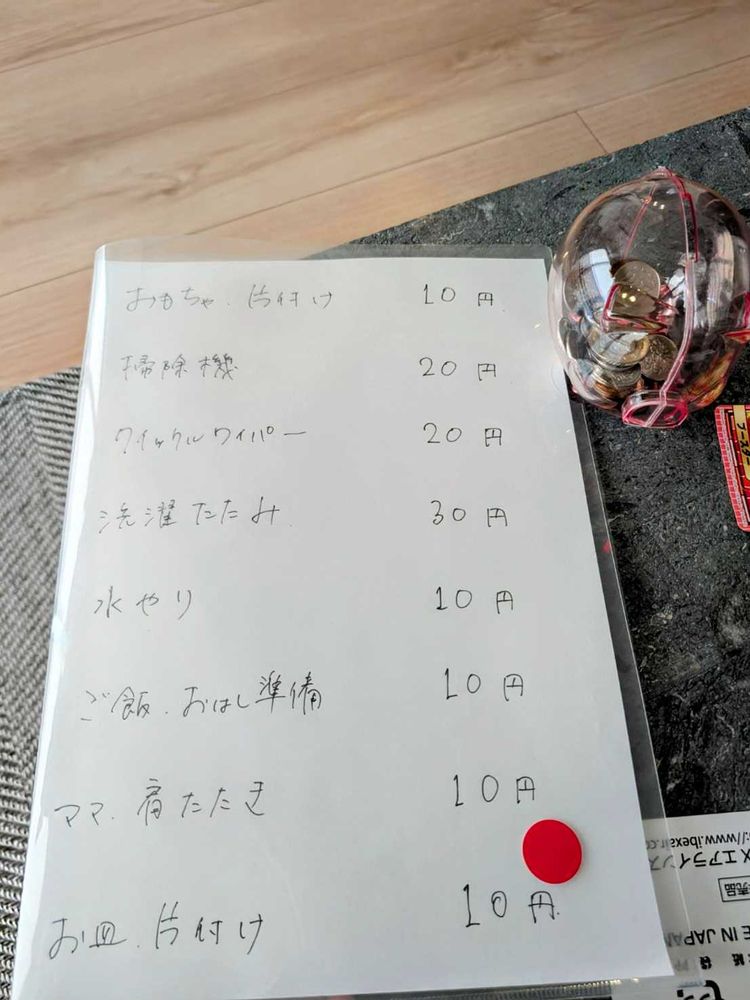 おもちゃ、片付け 10円
掃除機 20円
クイックルワイパー 20円
洗濯たたみ 30円
水やり 10円
ご飯、おはし準備 10円
ママ、肩たたき 10円
お皿、片付け 10円
://www.ibexair.co
X エアライン
売品
E IN JAPAN